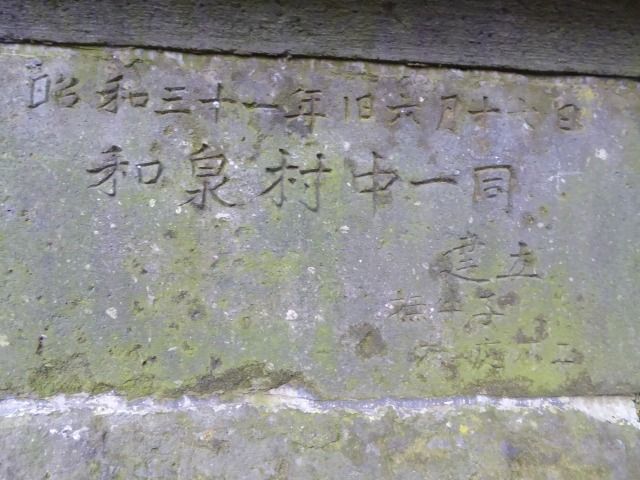 昭和三十一年旧六月十六日
和泉村中一同
建立